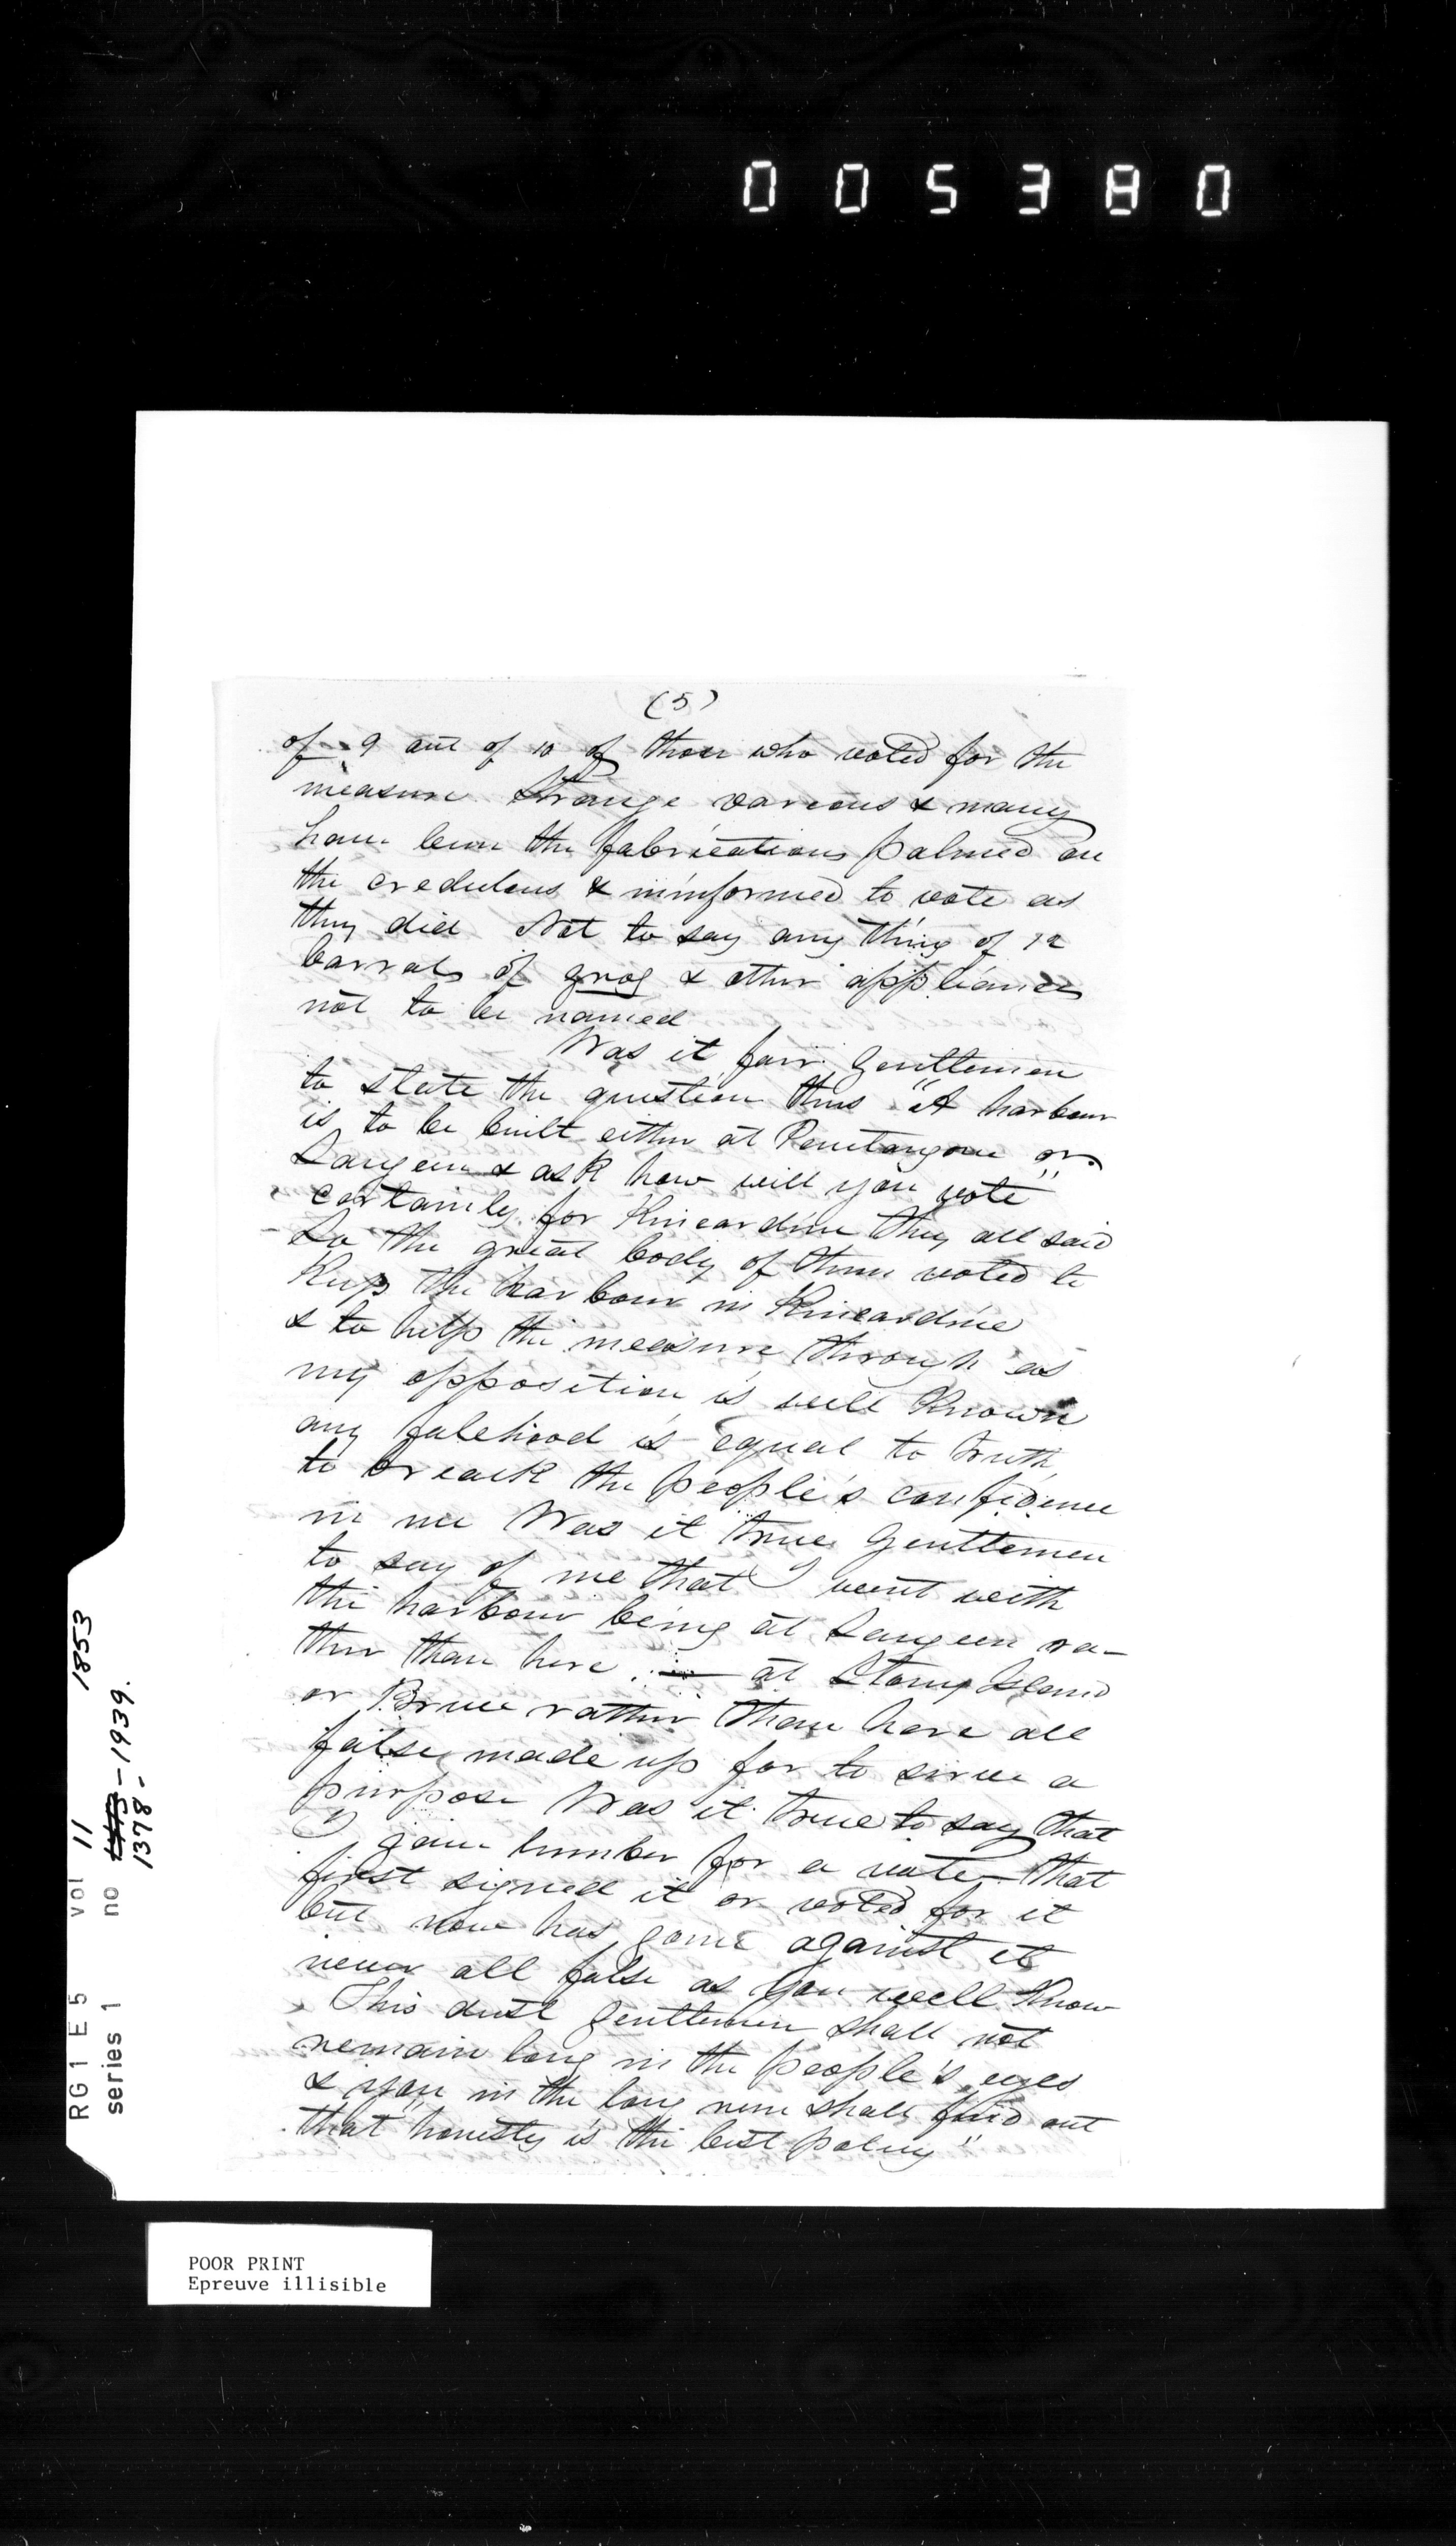 005380
(5)
of 9 out of 10 of those who voted for the
measure Strange various & many
have been the fabrications palmed on
the credulous & uninformed to vote as
they did Not to say any thing of 12
barrals of grog & other appliances
not to be named
Was it fair Gentlemen
to state the question thus "A harbour
is to be built either at Penetangore or
Saugeen & ask how will you vote"
certainly for Kincardine they all said
So the great body of them voted to
keep the harbour in Kincardine
& to help the measure through as
my opposition is well known
any falehood is equal to truth
to break the people's confidence
in me Was it true Gentlemen
to say of me that I went with
the harbour being at Saugeen ra-
ther than here. at Stony Island
or Bruce rather than here all
false made up for to serve a
purpose Was it true to say that
I gave lumber for a vote – That
first signed it or voted for it
but now has gone against it
never all false as you well know
This dust Gentlemen shall not
remain long in the people's eyes
& you in the long run shall find out
that honesty is the best policy"
RG1 E5 vol 11 1853
series 1 no 1939.
1378-
POOR PRINT
Epreuve illisible